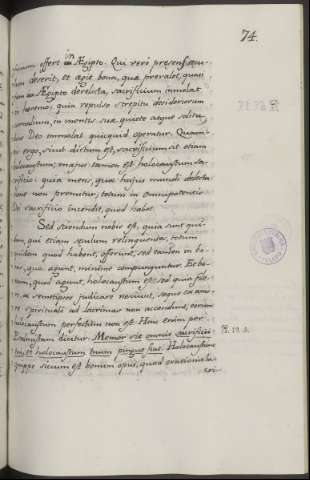 74.
offert in Ægipto. Qui verò præsens
deserit, et agit bona, quæ prevalet, quasi
Ægipto derelicta, sacrificium immolat
in heremo; quia repulso strepitu desideriorum
in mentis suæ quiete atque solitu
Deo immolat quicquid operatur. Quam
ergo, sicut dictum est, sacrificium sit etiam
holocaustum; majus tamen est holocaustum sa
quia mens, quæ hujus mundi delecta
non premitur, totum in omnipotentis
Dei sacrificio incendit, quod habet.
Sed sciendum nobis est, quia sunt qui
qui etiam seculum relinquentes, totum
quidem quod habent, offerunt, sed tamen in bo
quæ agunt, minimè compunguntur. Et bo
quod agunt, holocaustum est: sed quia fle
et semetipsos judicare nesciunt, neque ex amo
spirituali ad lacrimas non accendunt, eorum
holocaustum perfectum non est. Hinc enim per
Psalmistam dicitur: Memor sit omnis sacrificii
tui et holocaustum tuum pingue fiat. Holocaustum
quippe siccum est bonum opus, quod orationis la
cri